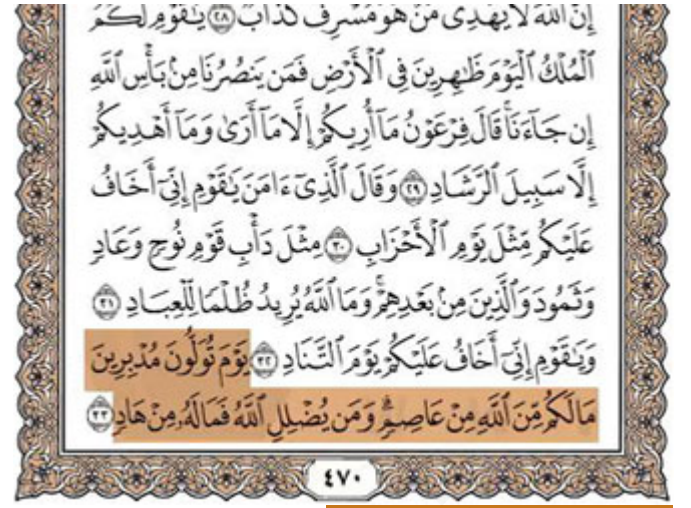 إِنَّ ٱللَّهَ لَا يَهْدِى مَنْ هُوَ مُسْرِفٌ كَذَّابٌ ٢٨ يَٰقَوْمِ لَكُمُ
ٱلْمُلْكُ ٱلْيَوْمَ ظَٰهِرِينَ فِى ٱلْأَرْضِ فَمَن يَنصُرُنَا مِنۢ بَأْسِ ٱللَّهِ
إِن جَآءَنَا ۚ قَالَ فِرْعَوْنُ مَآ أُرِيكُمْ إِلَّا مَآ أَرَىٰ وَمَآ أَهْدِيكُمْ
إِلَّا سَبِيلَ ٱلرَّشَادِ ٢٩ وَقَالَ ٱلَّذِىٓ ءَامَنَ يَٰقَوْمِ إِنِّىٓ أَخَافُ
عَلَيْكُم مِّثْلَ يَوْمِ ٱلْأَحْزَابِ ٣٠ مِثْلَ دَأْبِ قَوْمِ نُوحٍ وَعَادٍ
وَثَمُودَ وَٱلَّذِينَ مِنۢ بَعْدِهِمْ ۚ وَمَا ٱللَّهُ يُرِيدُ ظُلْمًا لِّلْعِبَادِ ٣١
وَيَٰقَوْمِ إِنِّىٓ أَخَافُ عَلَيْكُمْ يَوْمَ ٱلتَّنَادِ ٣٢ يَوْمَ تُوَلُّونَ مُدْبِرِينَ
مَا لَكُم مِّنَ ٱللَّهِ مِنْ عَاصِمٍ ۗ وَمَن يُضْلِلِ ٱللَّهُ فَمَا لَهُۥ مِنْ هَادٍ ٣٣
٤٧٠